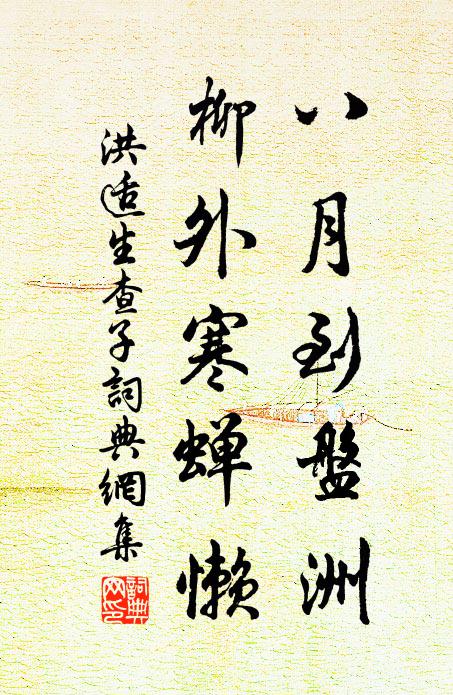 八月到盤洲
柳外寒蝉懒
洪适生查子詞典網集
詞典网印